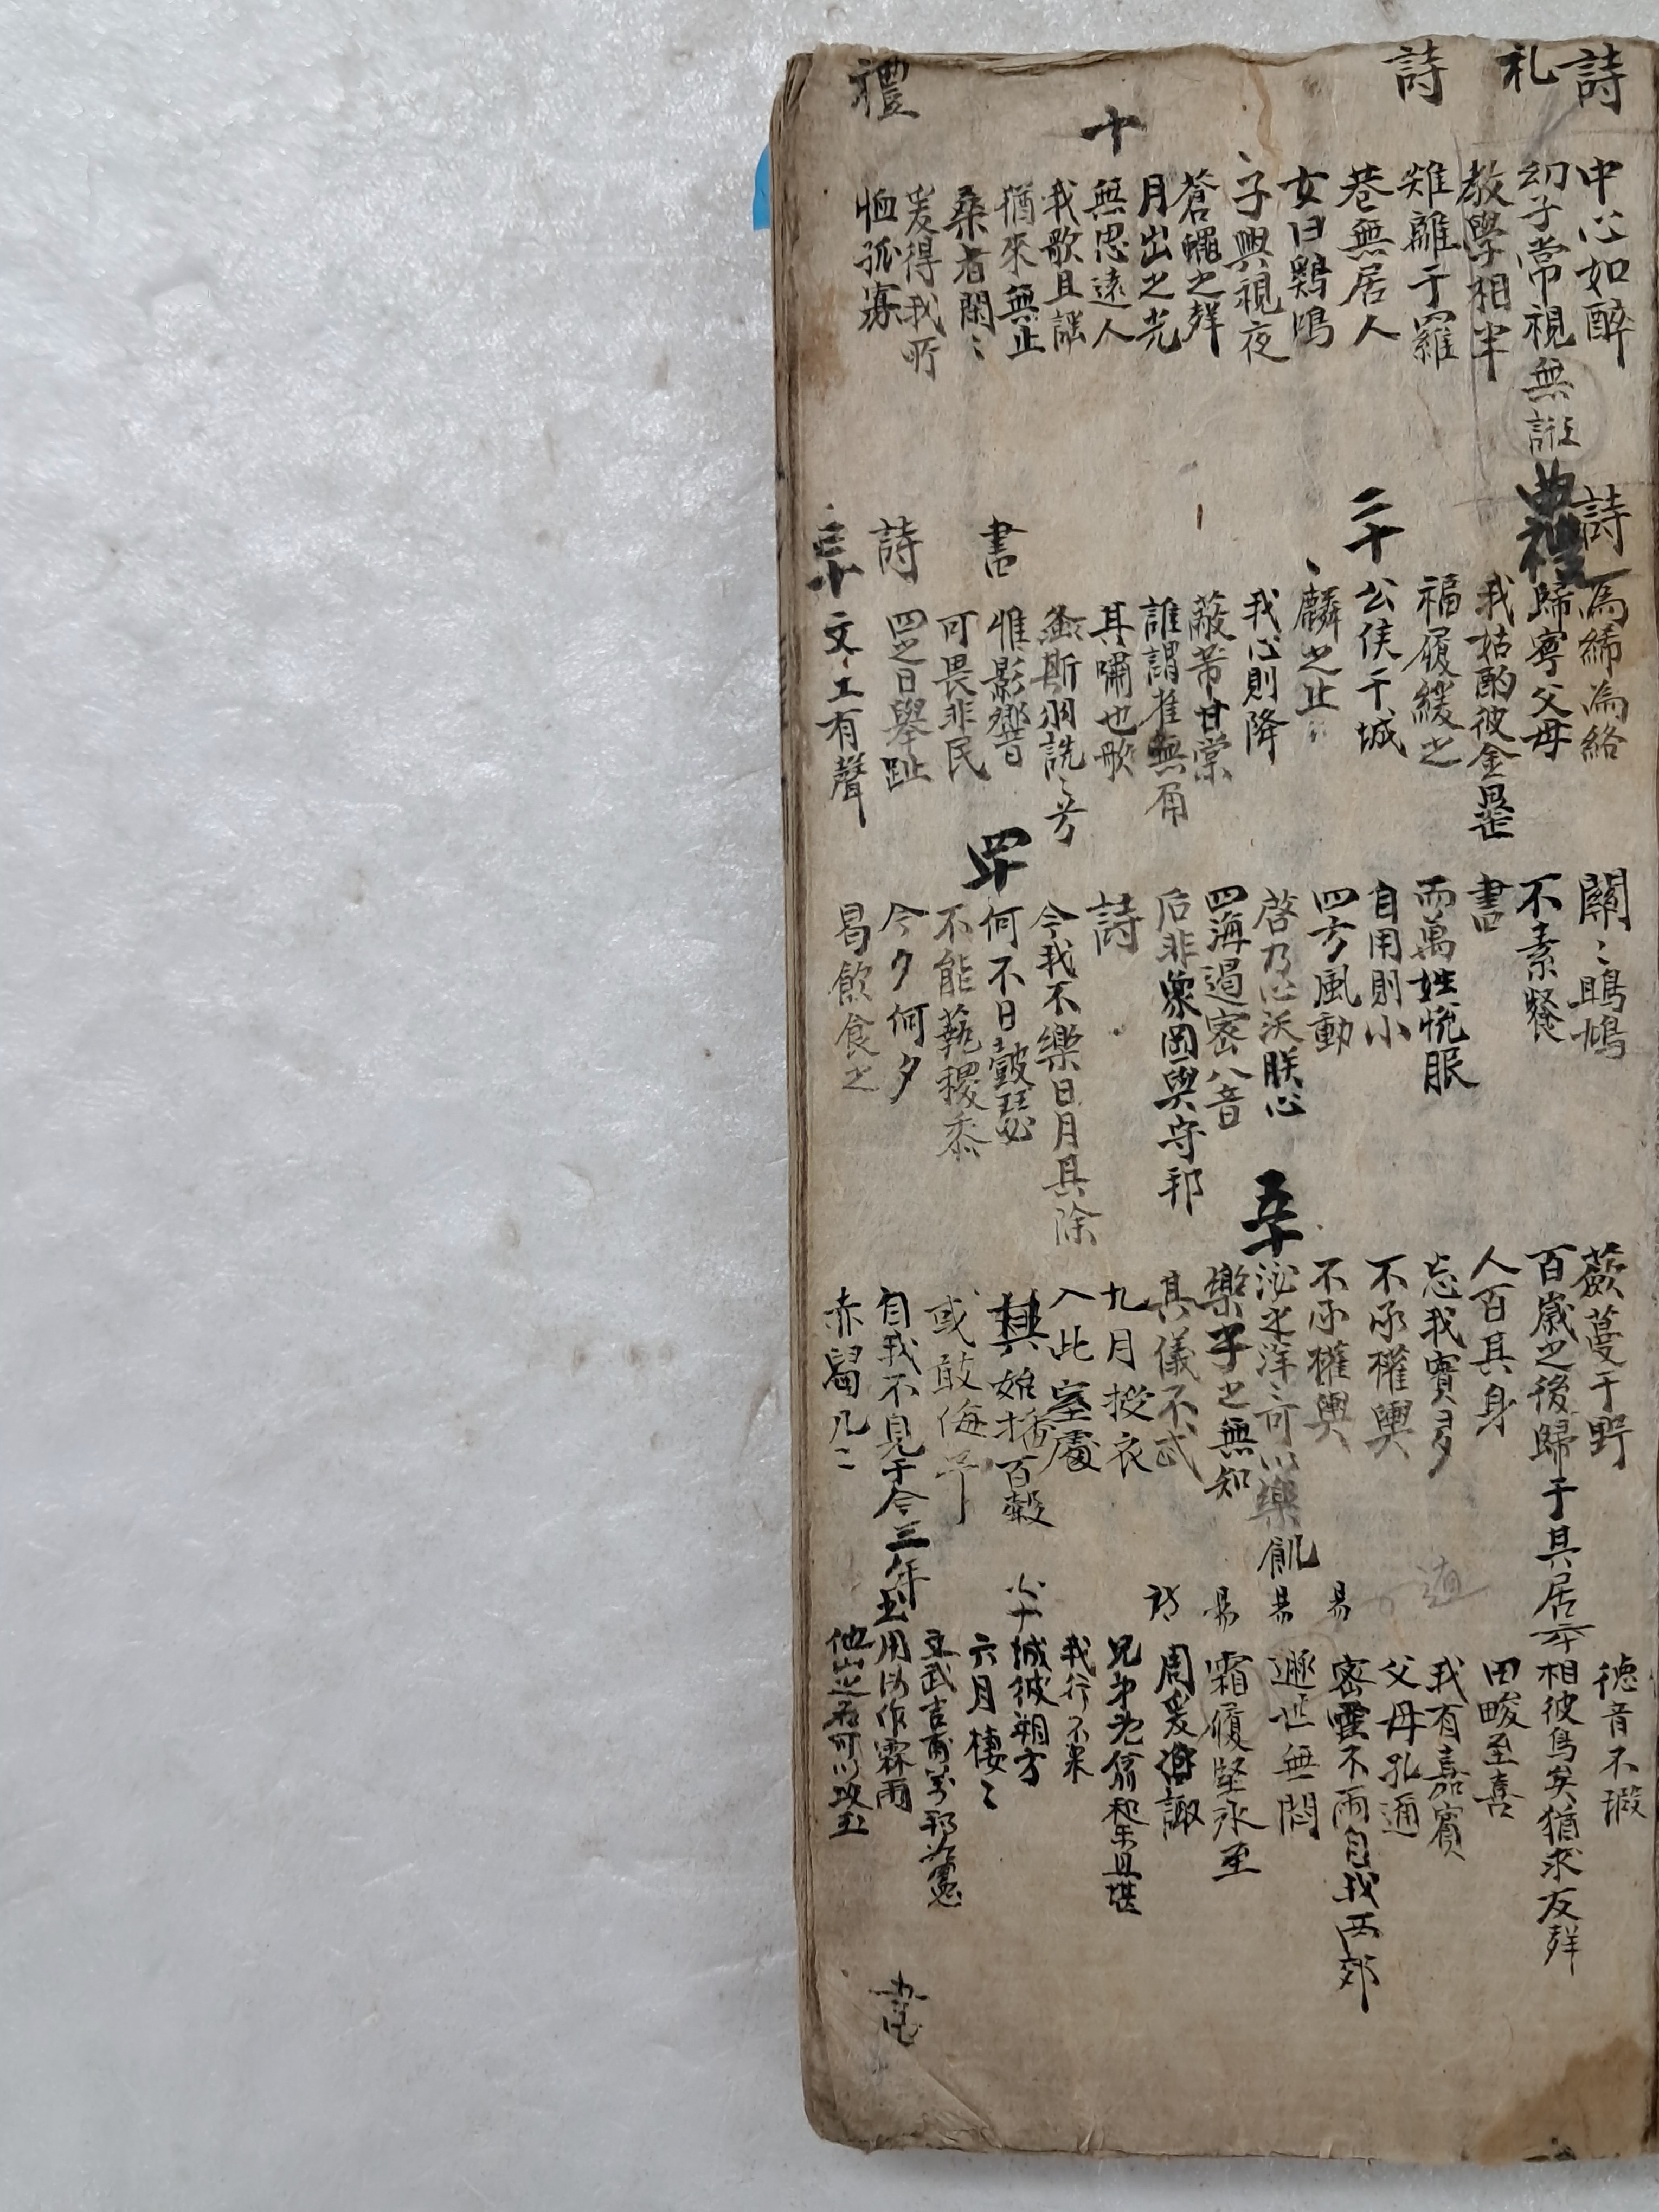 詩
中心如醉
札
幼子常視無誑
教學相半
詩
雉離于羅
巷無居人
女曰鷄鳴
子興視夜
蒼蠅之聲
十
月出之光
無思遠人
我歌且謠
猶來無止
桑者閑〻
爰得我所
禮
恤孤寡
詩
為絺為綌
曲禮
歸寧父母
我姑酌彼金罍
福履綏之
二十
公侯干城
麟之止
我心則降
蔽芾甘棠
誰謂雀無角
其嘯也歌
螽斯羽詵〻兮
書
惟影響
可畏非民
詩
四之日舉趾
三十
文王有聲
關〻鴡鳩
不素餐
書
而萬姓悅服
自用則小
四方風動
啓乃心沃朕心
四海遏密八音
后非衆罔與守邦
詩
今我不樂日月其除
四十
何不日鼓瑟
不能蓺稷黍
今夕何夕
曷飮食之
蘞蔓于野
百歲之後歸于其居
人百其身
忘我實多
不承權輿
不承權輿
五十
泌之洋〻可以樂飢
樂子之無知
其儀不忒
九月授衣
入此室處
其始播百穀
或敢侮予
自我不見于今三年
赤舃几〻
德音不瑕
六十
相彼鳥矣猶求友聲
田畯至喜
我有嘉賓
父母孔邇
易
密雲不雨自我西郊
易
遯世無悶
易
霜履堅冰至
詩
周爰咨諏
兄弟旣翕和樂且堪
我行不來
城彼朔方
六月棲〻
文武吉甫萬邦爲憲
書
用汝作霖雨
他山之石可以攻玉
書